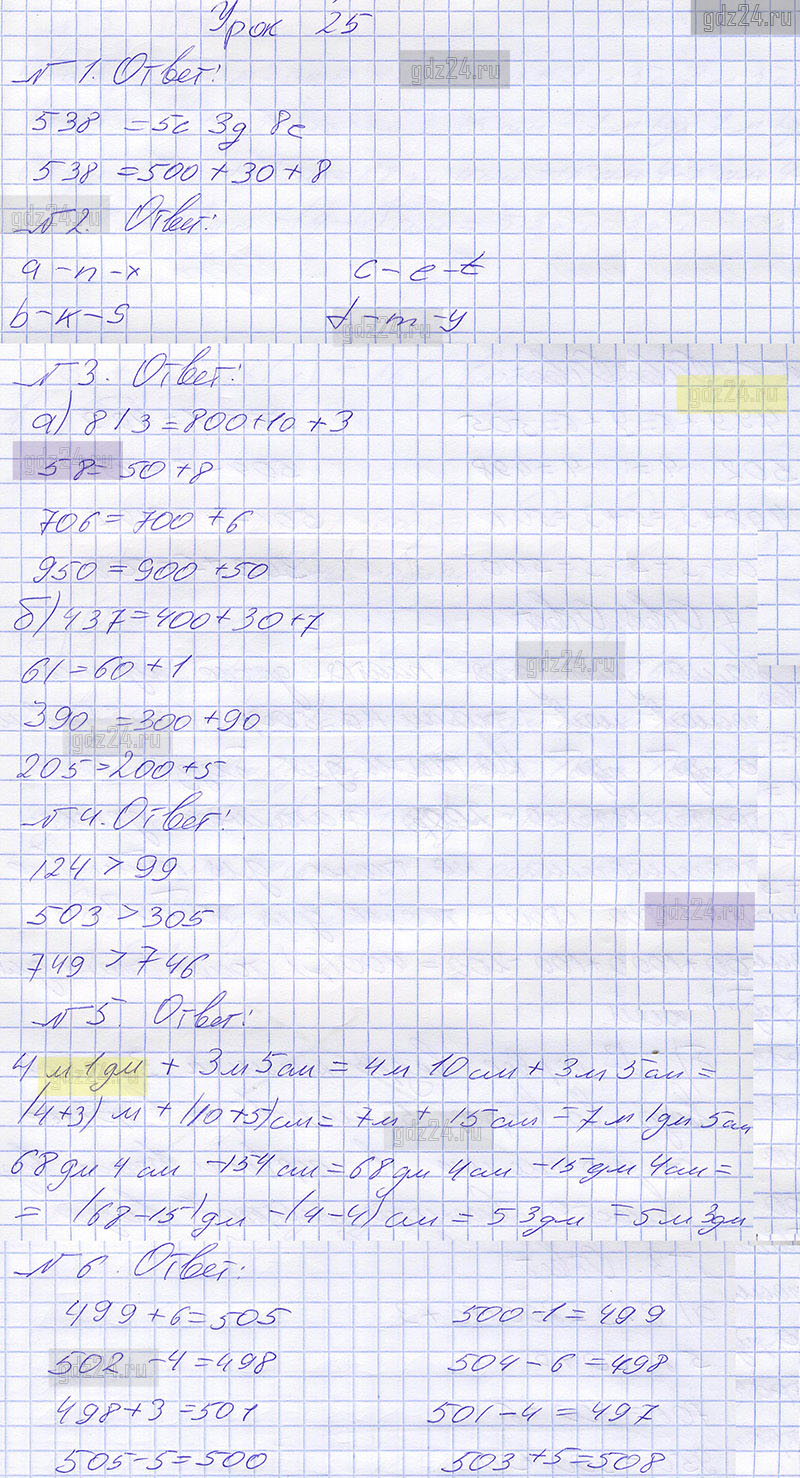 Урок 25
gdz24.ru
№1. Ответ:
gdz24.ru
538 = 5с 3д 8е
538 = 500 + 30 + 8
gdz24.ru
№2. Ответ:
a - n - x c - e - t
b - k - s d - m - y
gdz24.ru
№3. Ответ:
gdz24.ru
а) 813 = 800 + 10 + 3
gdz24.ru
58 = 50 + 8
706 = 700 + 6
950 = 900 + 50
б) 437 = 400 + 30 + 7
61 = 60 + 1
gdz24.ru
390 = 300 + 90
gdz24.ru
205 = 200 + 5
№4. Ответ:
124 > 99
503 > 305
gdz24.ru
749 > 746
№5. Ответ:
4 м 1 дм + 3 м 5 см = 4 м 10 см + 3 м 5 см =
gdz24.ru
(4+3) м + (10+5) см = 7 м + 15 см = 7 м 1 дм 5 см
gdz24.ru
68 дм 4 см - 154 см = 68 дм 4 см - 15 дм 4 см =
= (68-15) дм - (4-4) см = 53 дм = 5 м 3 дм
№6. Ответ:
499 + 6 = 505 500 - 1 = 499
502 - 4 = 498 504 - 6 = 498
gdz24.ru
498 + 3 = 501 501 - 4 = 497
505 - 5 = 500 503 + 5 = 508